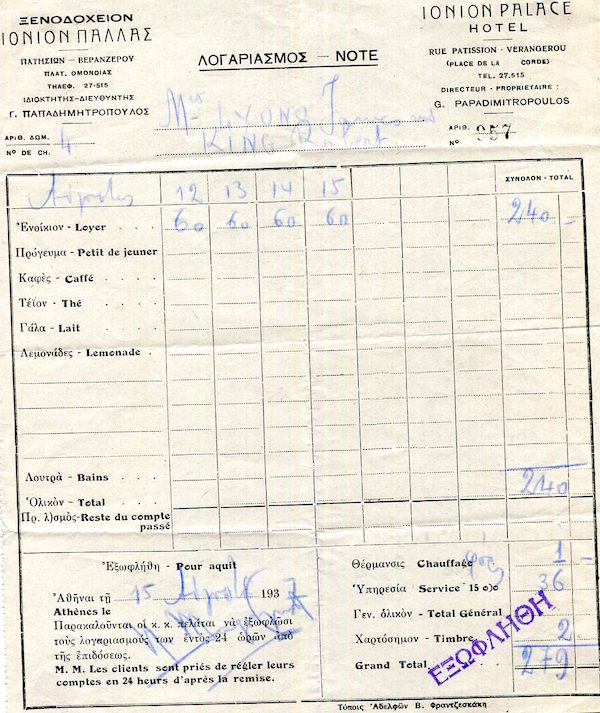 ΞΕΝΟΔΟΧΕΙΟΝ
ΙΟΝΙΟΝ ΠΑΛΛΑΣ
ΠΑΤΗΣΙΩΝ - ΒΕΡΑΝΖΕΡΟΥ
ΠΛΑΤ. ΟΜΟΝΟΙΑΣ
ΤΗΛΕΦ. 27-515
ΙΔΙΟΚΤΗΤΗΣ-ΔΙΕΥΘΥΝΤΗΣ
Γ. ΠΑΠΑΔΗΜΗΤΡΟΠΟΥΛΟΣ
ΑΡΙΘ. ΔΩΜ.
Nº DE CH. 4
ΛΟΓΑΡΙΑΣΜΟΣ - NOTE
IONION PALACE
HOTEL
RUE PATISSION - VERANGEROU
(PLACE DE LA CORDE)
TEL. 27.515
DIRECTEUR - PROPRIETAIRE :
G. PAPADIMITROPOULOS
ΑΡΙΘ.
Nº 957
LYONS
KING
12 13 14 15 ΣΥΝΟΛΟΝ - TOTAL
Ἐνοίκιον - Loyer 60 60 60 60 240 -
Πρόγευμα - Petit de jeuner
Καφὲς - Caffé
Τέϊον - Thé
Γάλα - Lait
Λεμονάδες - Lemonade
Λουτρὰ - Bains
Ὁλικὸν - Total 240
Πρ. λ)σμὸς - Reste du compte
passé
Ἐξωφλήθη - Pour aquit
Ἀθῆναι τῇ 15 193 7
Athènes le
Παρακαλοῦνται οἱ κ. κ. πελάται νὰ ἐξωφλῶσι
τοὺς λογαριασμούς των ἐντὸς 24 ὡρῶν ἀπὸ
τῆς ἐπιδόσεως.
M. M. Les clients sont priés de régler leurs
comptes en 24 heures d'après la remise.
Θέρμανσις Chauffage φῶς 1 -
Ὑπηρεσία Service 15 0)0 36
Γεν. ὁλικὸν - Total Général
Χαρτόσημον - Timbre 2
Grand Total 279
ΕΞΩΦΛΗΘΗ
Τύποις Ἀδελφῶν Β. Φραντζεσκάκη